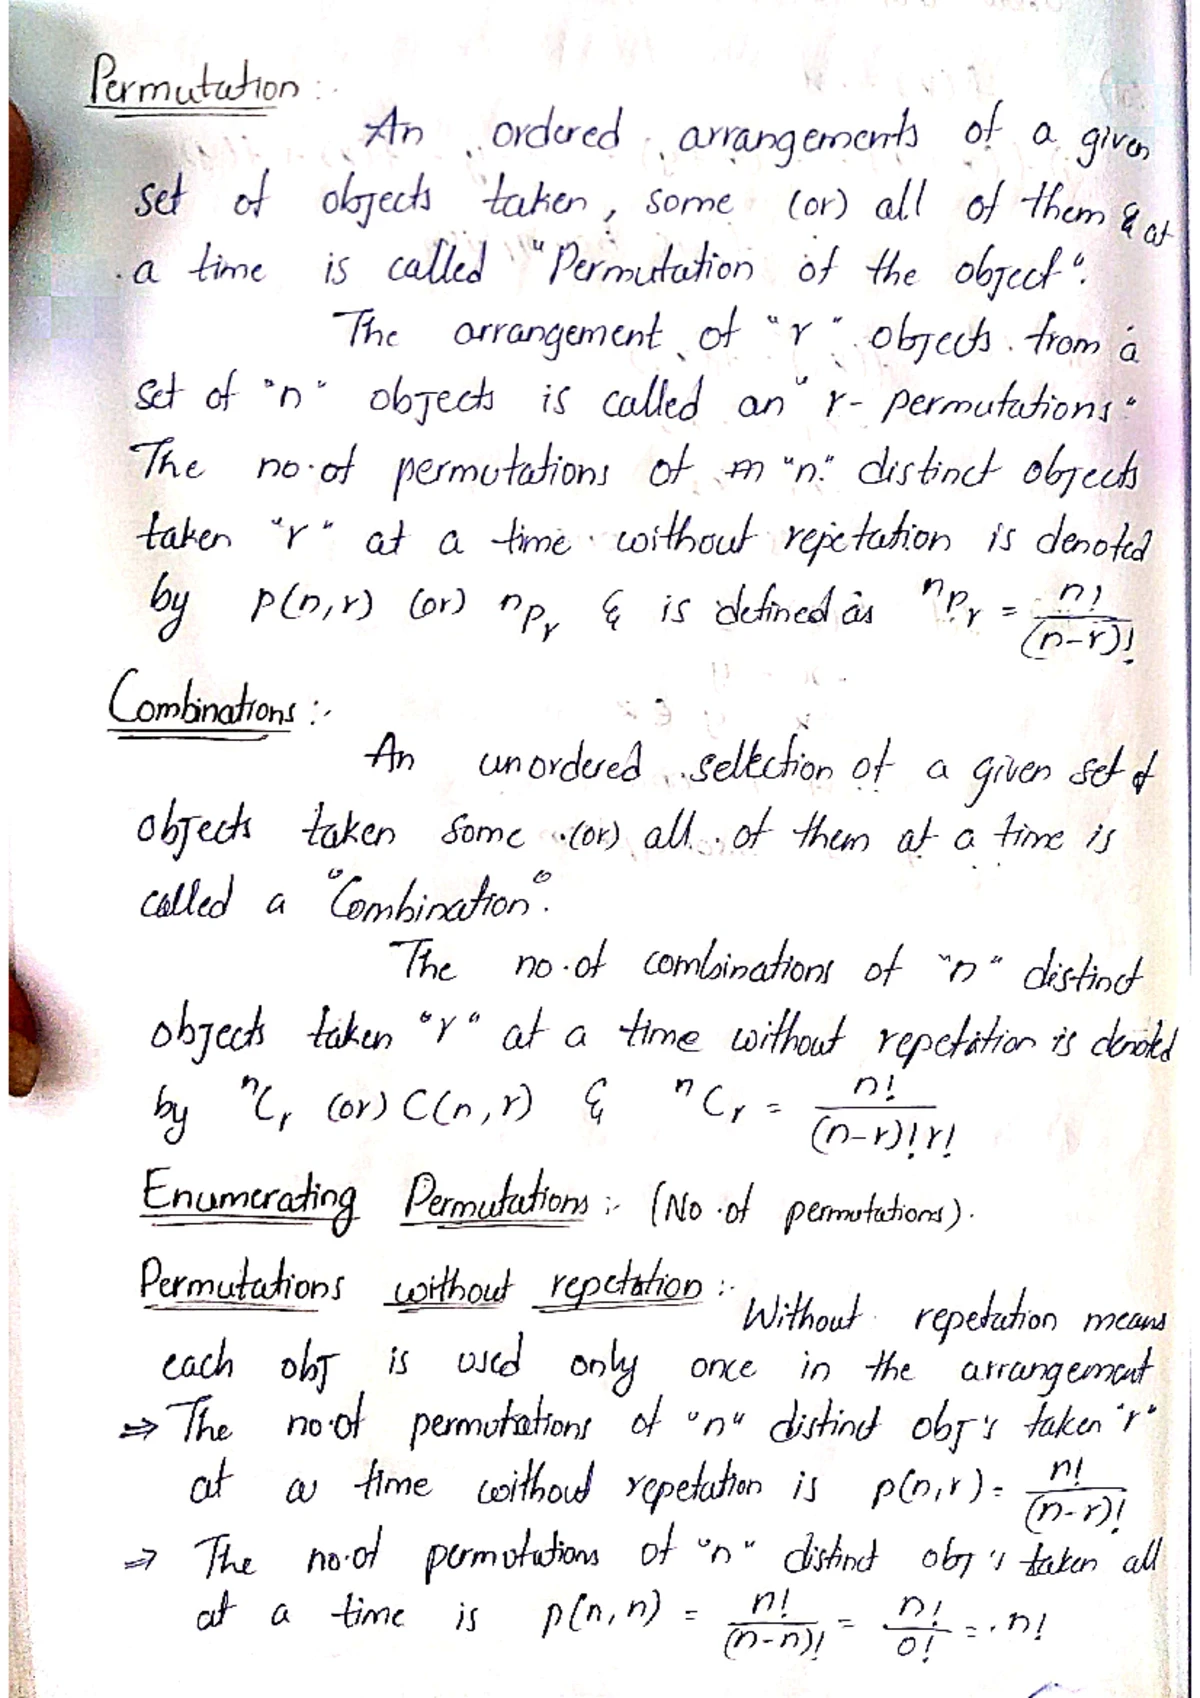 Permutation :-
An ordered arrangements of a given
set of objects taken, some (or) all of them & at
a time is called "Permutation of the object".
The arrangement of "r" objects from a
set of "n" objects is called an "r- permutations"
The no.of permutations of m "n" distinct objects
taken "r" at a time without repetation is denoted
by p(n,r) (or) nPr & is defined as nPr = n!/(n-r)!
Combinations :-
An unordered sellection of a given set of
objects taken some (or) all of them at a time is
called a "Combination".
The no.of combinations of "n" distinct
objects taken "r" at a time without repetation is denoted
by nCr (or) C(n,r) & nCr = n!/(n-r)!r!
Enumerating Permutations :- (No.of permutations).
Permutations without repetation :- Without repetation means
each obj is used only once in the arrangement
⇒ The no.of permutations of "n" distinct obj's taken "r"
at a time without repetation is p(n,r) = n!/(n-r)!
⇒ The no.of permutations of "n" distinct obj's taken all
at a time is p(n,n) = n!/(n-n)! = n!/0! = n!